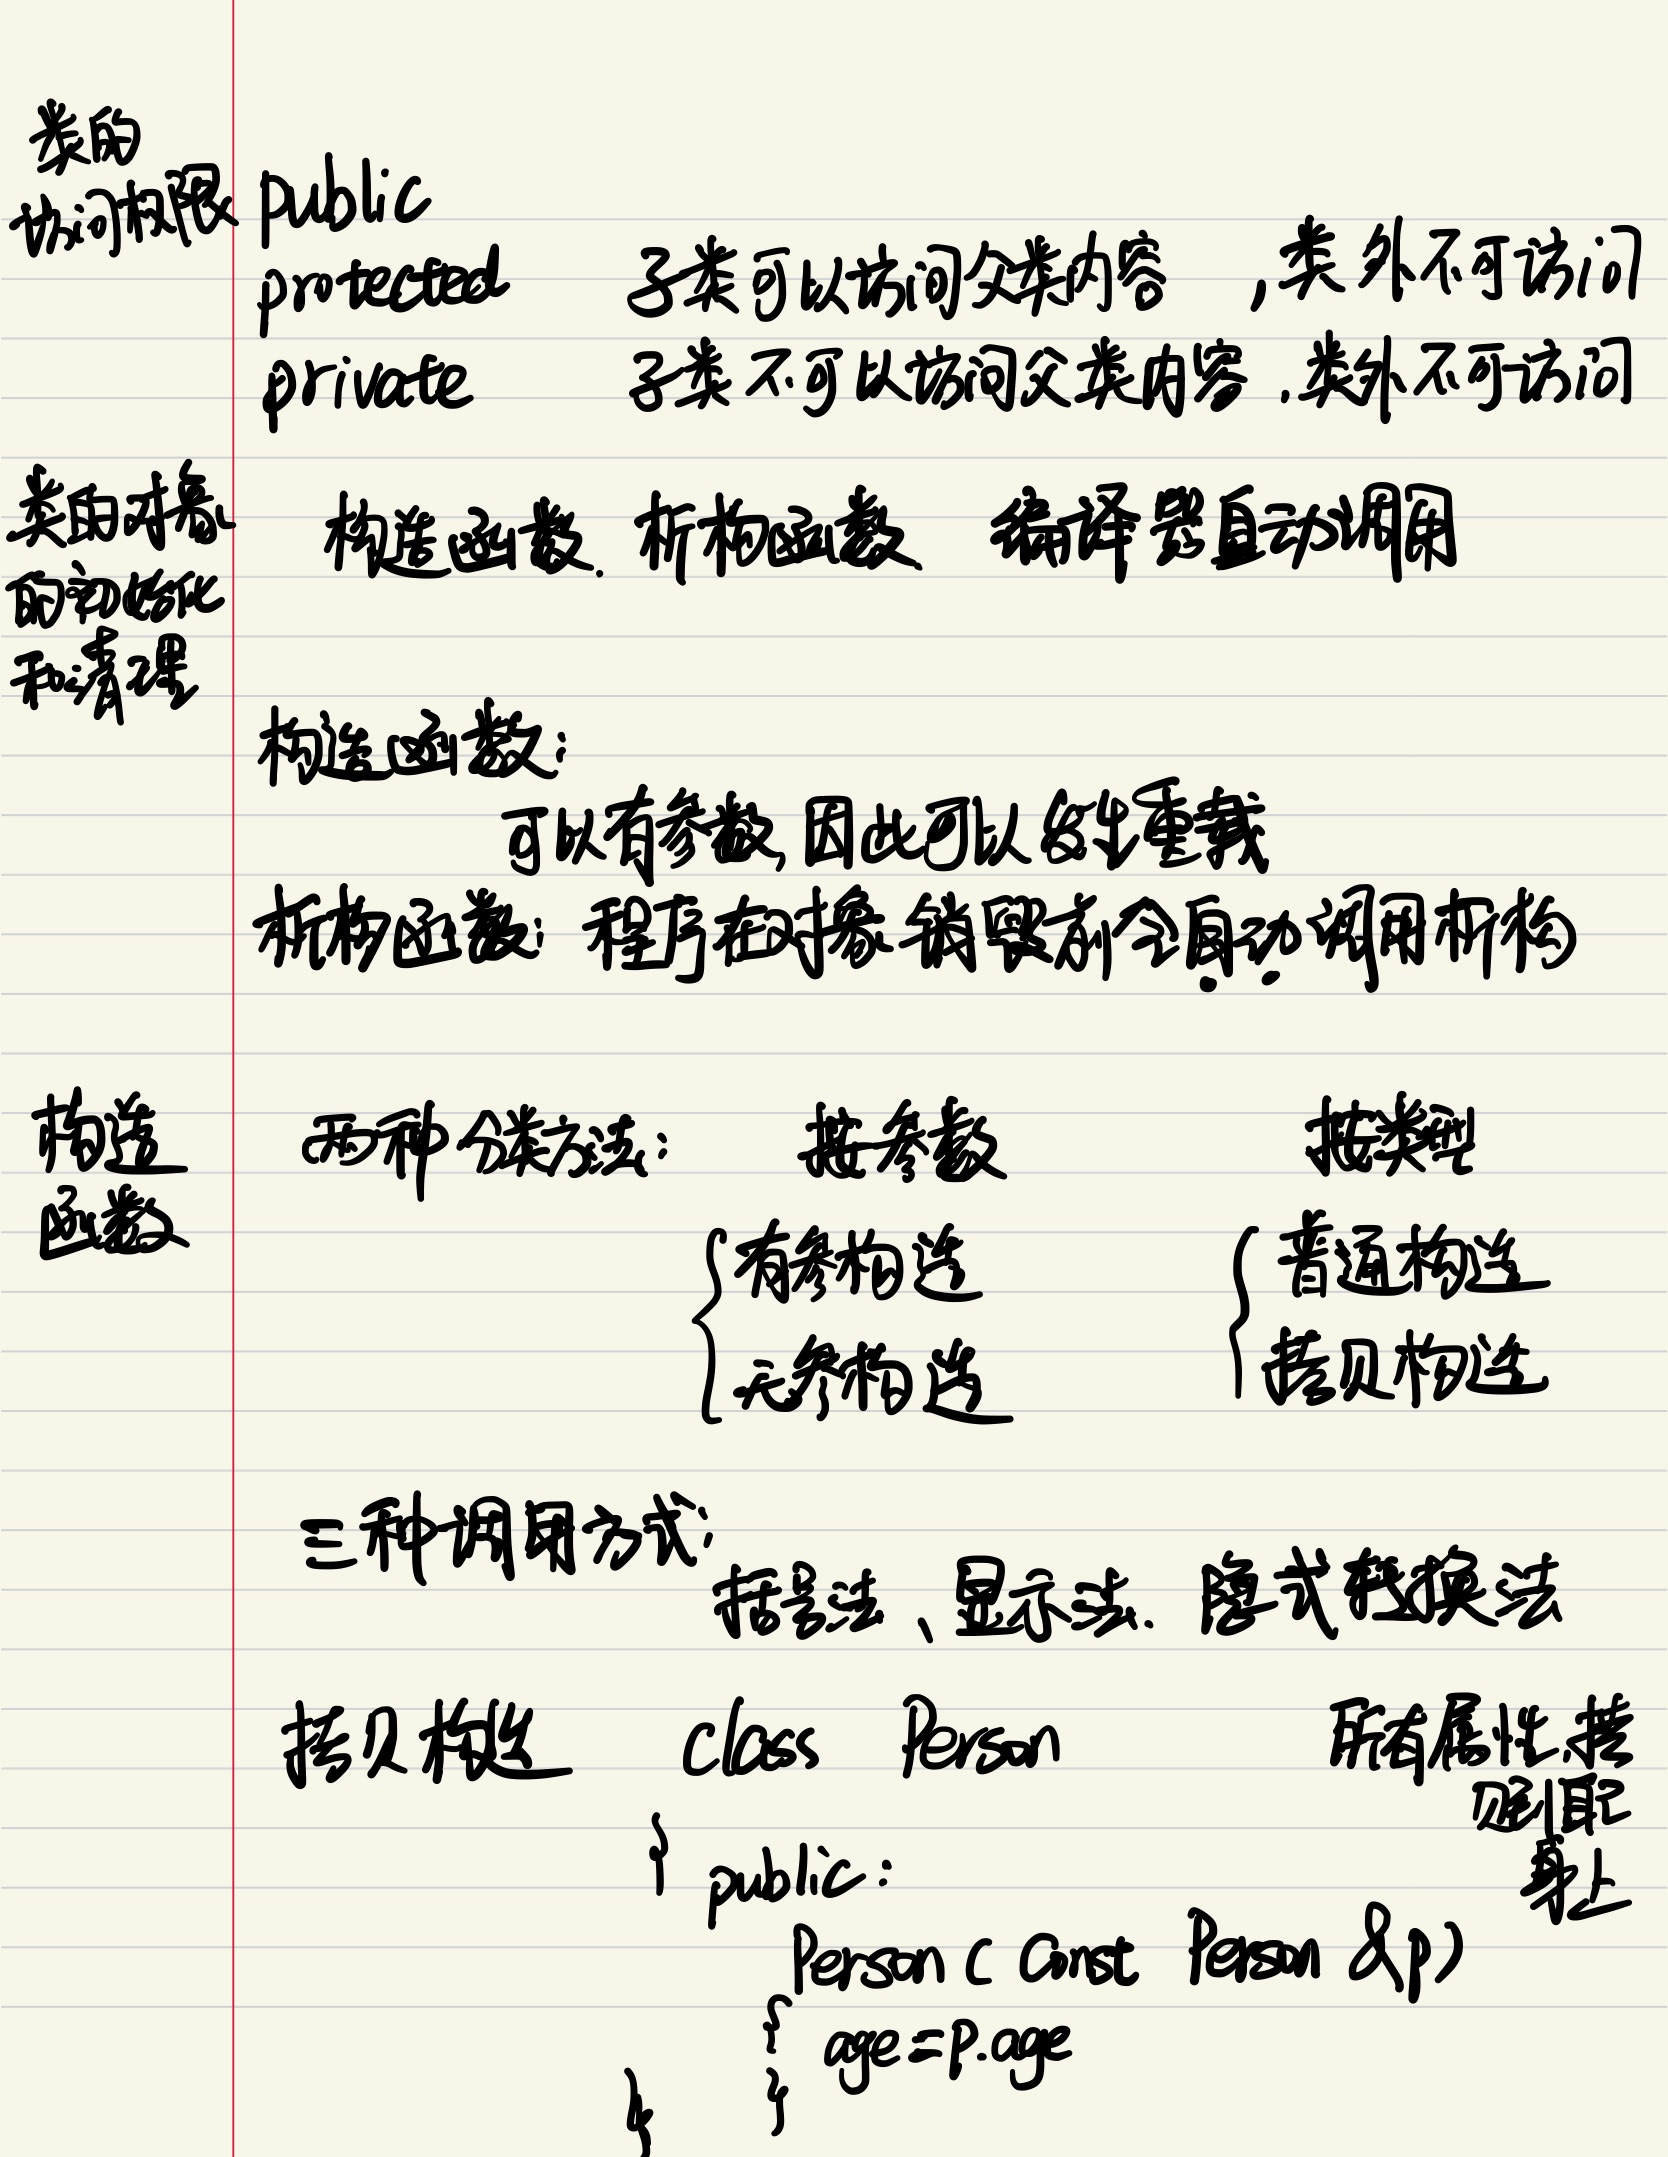 类的
访问权限
public
protected 子类可以访问父类内容 ,类外不可访问
private 子类不可以访问父类内容,类外不可访问
类的对象
的初始化
和清理
构造函数、析构函数 编译器自动调用
构造函数:
可以有参数,因此可以发生重载
析构函数: 程序在对象销毁前会自动调用析构
构造
函数
两种分类方法: 按参数 按类型
{ 有参构造 { 普通构造
无参构造 拷贝构造
三种调用方式:
括号法、显示法、隐式转换法
拷贝构造 class Person 所有属性,拷
贝到自己
身上
{ public:
Person ( const Person &p)
{ age=p.age
}
}